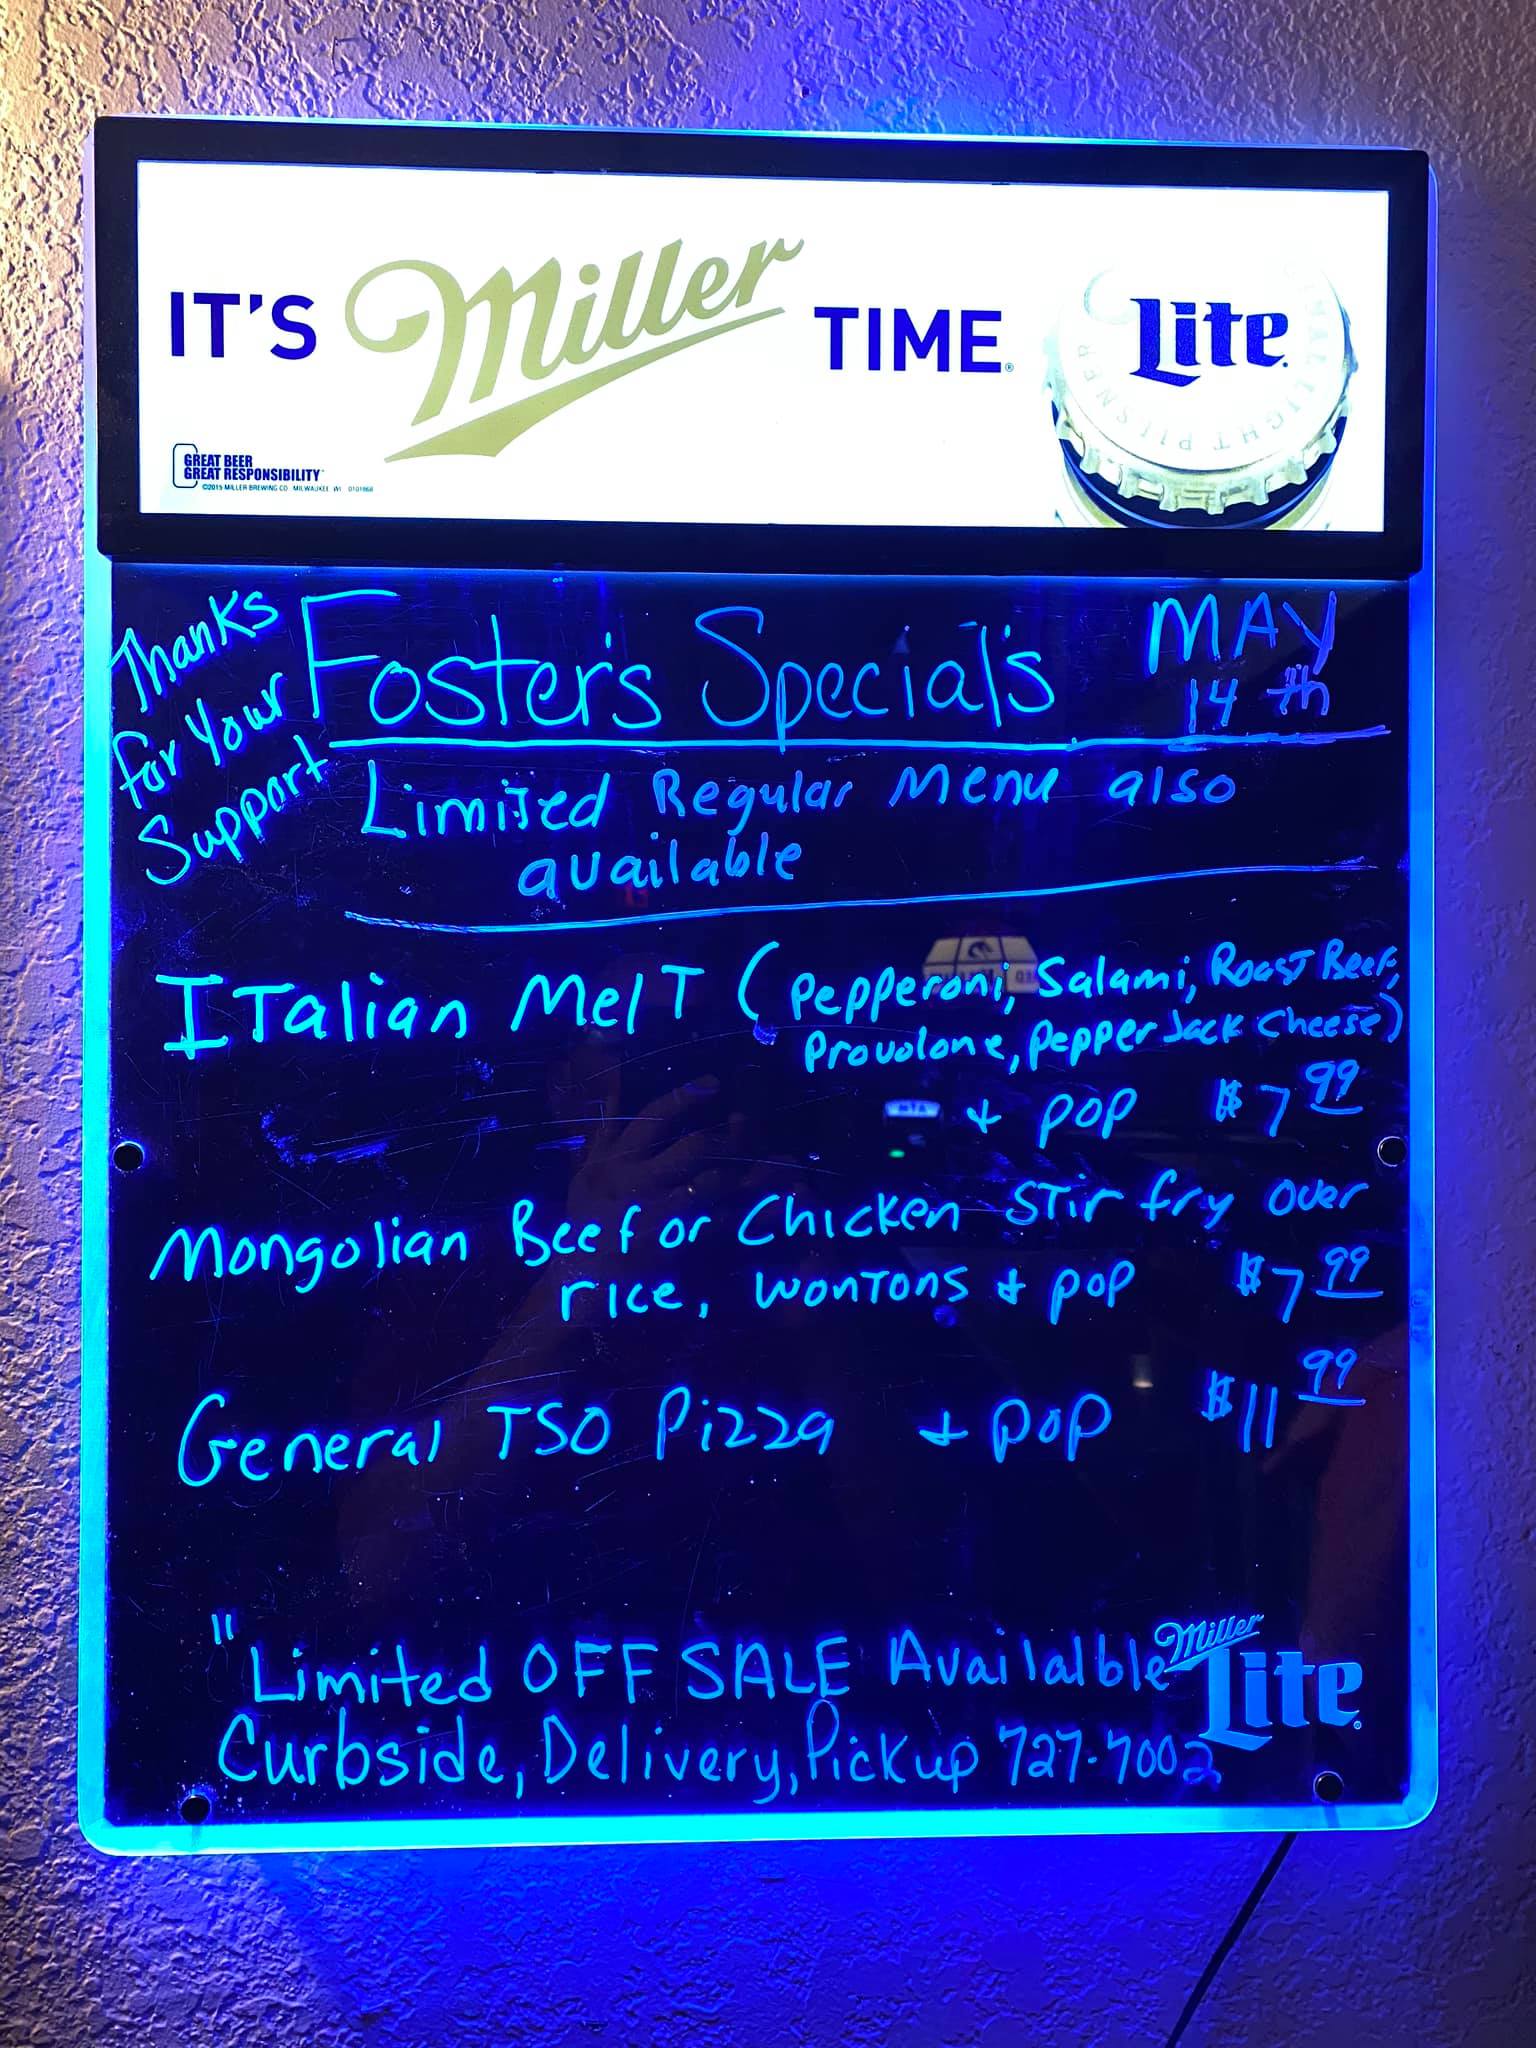 IT'S Miller TIME® Lite
GREAT BEER
GREAT RESPONSIBILITY®
©2015 MILLER BREWING CO., MILWAUKEE, WI
Thanks
for Your
Support
Foster's Special's
MAY
14th
Limited Regular Menu also
available
Italian Melt (Pepperoni, Salami, Roast Beef,
Provolone, Pepper Jack Cheese)
+ pop $7.99
Mongolian Beef or Chicken Stir fry over
rice, wontons + pop $7.99
General TSO Pizza + pop $11.99
"Limited OFF SALE Availalble
Miller
Lite
Curbside, Delivery, Pickup 727-7002